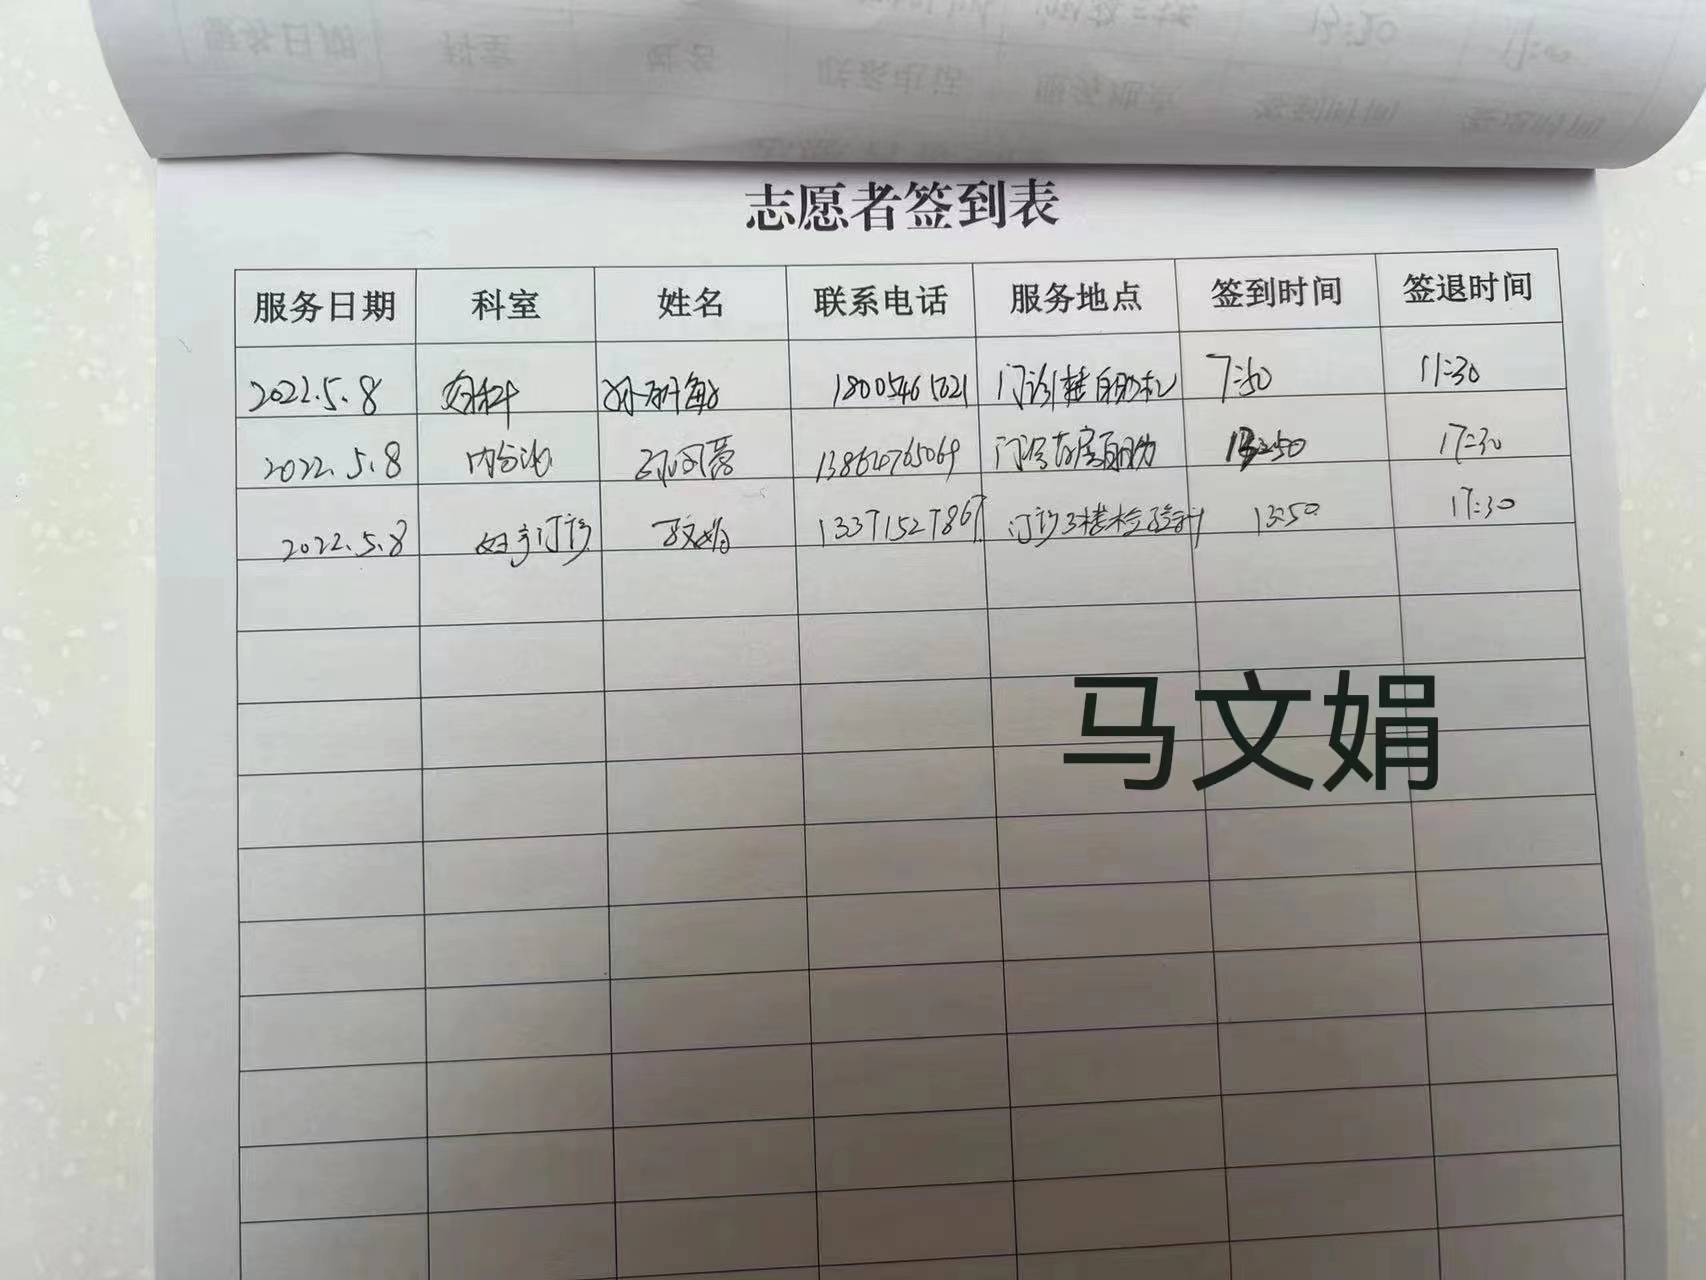 志愿者签到表
服务日期 科室 姓名 联系电话 服务地点 签到时间 签退时间
2022.5.8 18005461621 7:50 11:30
2022.5.8 内分泌 13864765069 门诊药房自助 13:50 17:30
2022.5.8 妇产门诊 马文娟 13371527867 门诊3楼检验科 13:50 17:30
马文娟